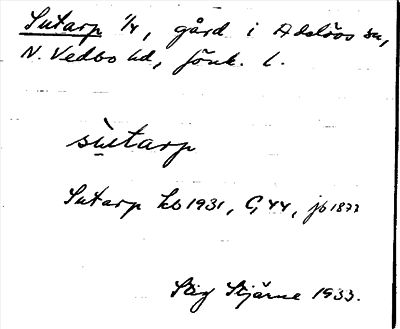 Sutarp 1/4, gård i Adelövs sn,
N. Vedbo hd, Jönk. l.
sùtarp
Sutarp kb 1931, G 44, jb 1877
Stig Stjärne 1933.